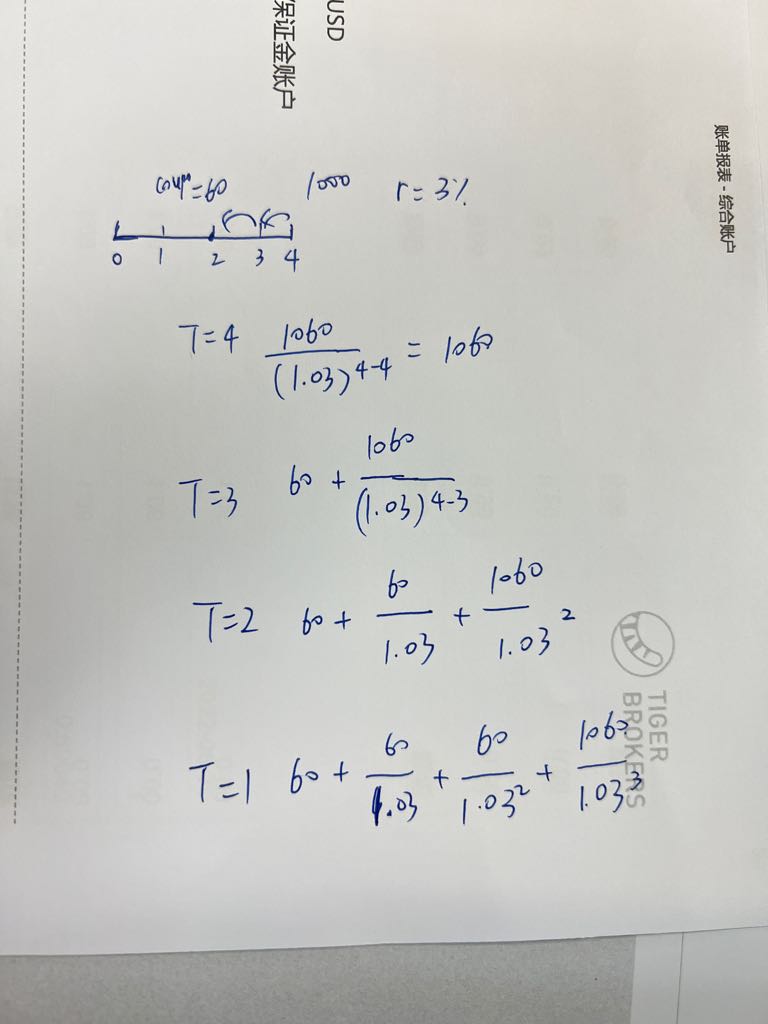 USD
保证金账户
账单报表 - 综合账户
coupn=60 1000 r=3%
0 1 2 3 4
T=4 1060/(1.03)^4-4 = 1060
T=3 60 + 1060/(1.03)^4-3
T=2 60 + 60/1.03 + 1060/1.03^2
T=1 60 + 60/1.03 + 60/1.03^2 + 1060/1.03^3
TIGER
BROKERS